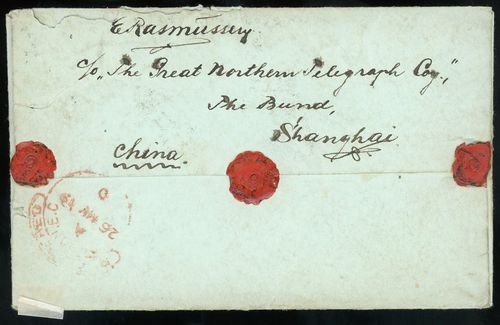 E Rasmussen
c/o „The Great Northern Telegraph Coy.",
The Bund,
Shanghai
China